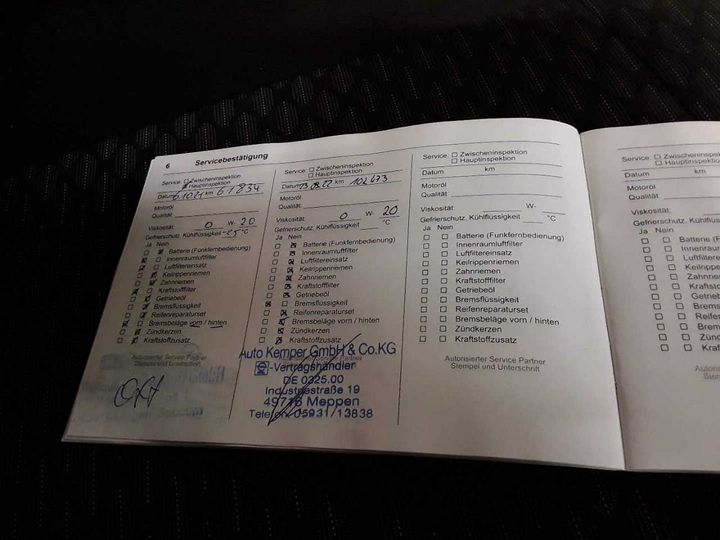 6 Servicebestätigung
Service: Zwischeninspektion
Hauptinspektion
Datum 61021 km 61834
Motoröl
Qualität
Viskosität 0 W- 20
Gefrierschutz, Kühlflüssigkeit -25 °C
Ja Nein
Batterie (Funkfernbedienung)
Innenraumluftfilter
Luftfiltereinsatz
Keilrippenriemen
Zahnriemen
Kraftstofffilter
Getriebeöl
Bremsflüssigkeit
Reifenreparaturset
Bremsbeläge vorn / hinten
Zündkerzen
Kraftstoffzusatz
Autorisierter Service Partner
Stempel und Unterschrift
Service: Zwischeninspektion
Hauptinspektion
Datum 23.08.22 km 102473
Motoröl
Qualität
Viskosität 0 W- 20
Gefrierschutz, Kühlflüssigkeit °C
Ja Nein
Batterie (Funkfernbedienung)
Innenraumluftfilter
Luftfiltereinsatz
Keilrippenriemen
Zahnriemen
Kraftstofffilter
Getriebeöl
Bremsflüssigkeit
Reifenreparaturset
Bremsbeläge vorn / hinten
Zündkerzen
Kraftstoffzusatz
Auto Kemper GmbH & Co.KG
-Vertragshändler
DE 0325.00
Industriestraße 19
49716 Meppen
Telefon 05931/13838
Service: Zwischeninspektion
Hauptinspektion
Datum km
Motoröl
Qualität
Viskosität W-
Gefrierschutz, Kühlflüssigkeit °C
Ja Nein
Batterie (Funkfernbedienung)
Innenraumluftfilter
Luftfiltereinsatz
Keilrippenriemen
Zahnriemen
Kraftstofffilter
Getriebeöl
Bremsflüssigkeit
Reifenreparaturset
Bremsbeläge vorn / hinten
Zündkerzen
Kraftstoffzusatz
Autorisierter Service Partner
Stempel und Unterschrift
Service: Zwischeninspektion
Hauptinspektion
Datum km
Motoröl
Qualität
Viskosität
Gefrierschutz, Kühlflüssig
Ja Nein
Batterie (Funkf
Innenraumluft
Luftfiltereins
Keilrippenri
Zahnrieme
Kraftstoff
Getriebe
Bremsfl
Reifen
Brems
Zünd
Kraft
Autor